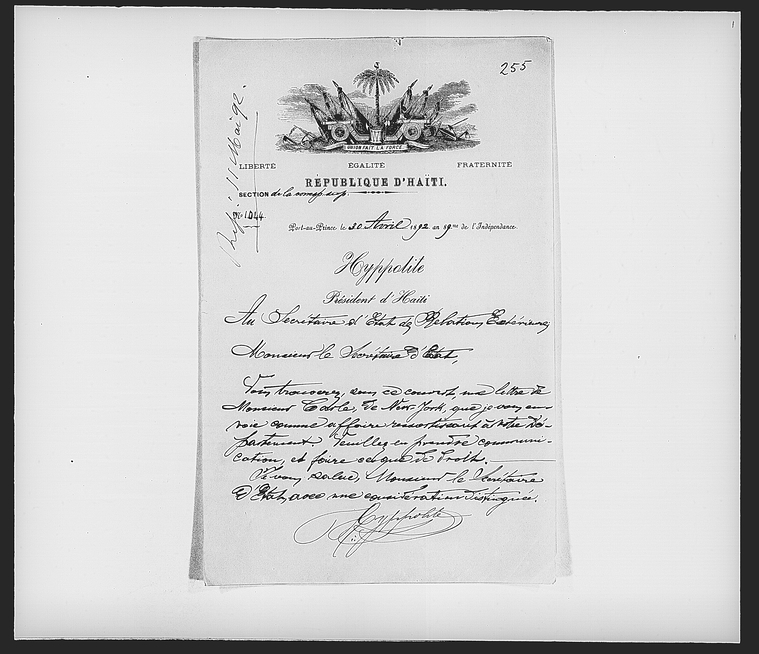 255
Rép: 11 Mai 92.
L'UNION FAIT LA FORCE
LIBERTÉ ÉGALITÉ FRATERNITÉ
RÉPUBLIQUE D'HAÏTI.
SECTION de la corresp.
No 1044
Port-au-Prince le 30 Avril 1892 an 89me de l'Indépendance.
Hyppolite
Président d'Haïti
Au Secrétaire d'Etat des Relations Extérieures
Monsieur le Secrétaire d'Etat,
Vous trouverez, sous ce couvert, une lettre de
Monsieur de New-York, que je vous en-
voie comme affaire ressortissant à votre Dé-
partement. Veuillez en prendre communi-
cation, et faire ce que de droit.
Je vous salue, Monsieur le Secrétaire
d'Etat, avec une considération distinguée.
Hyppolite